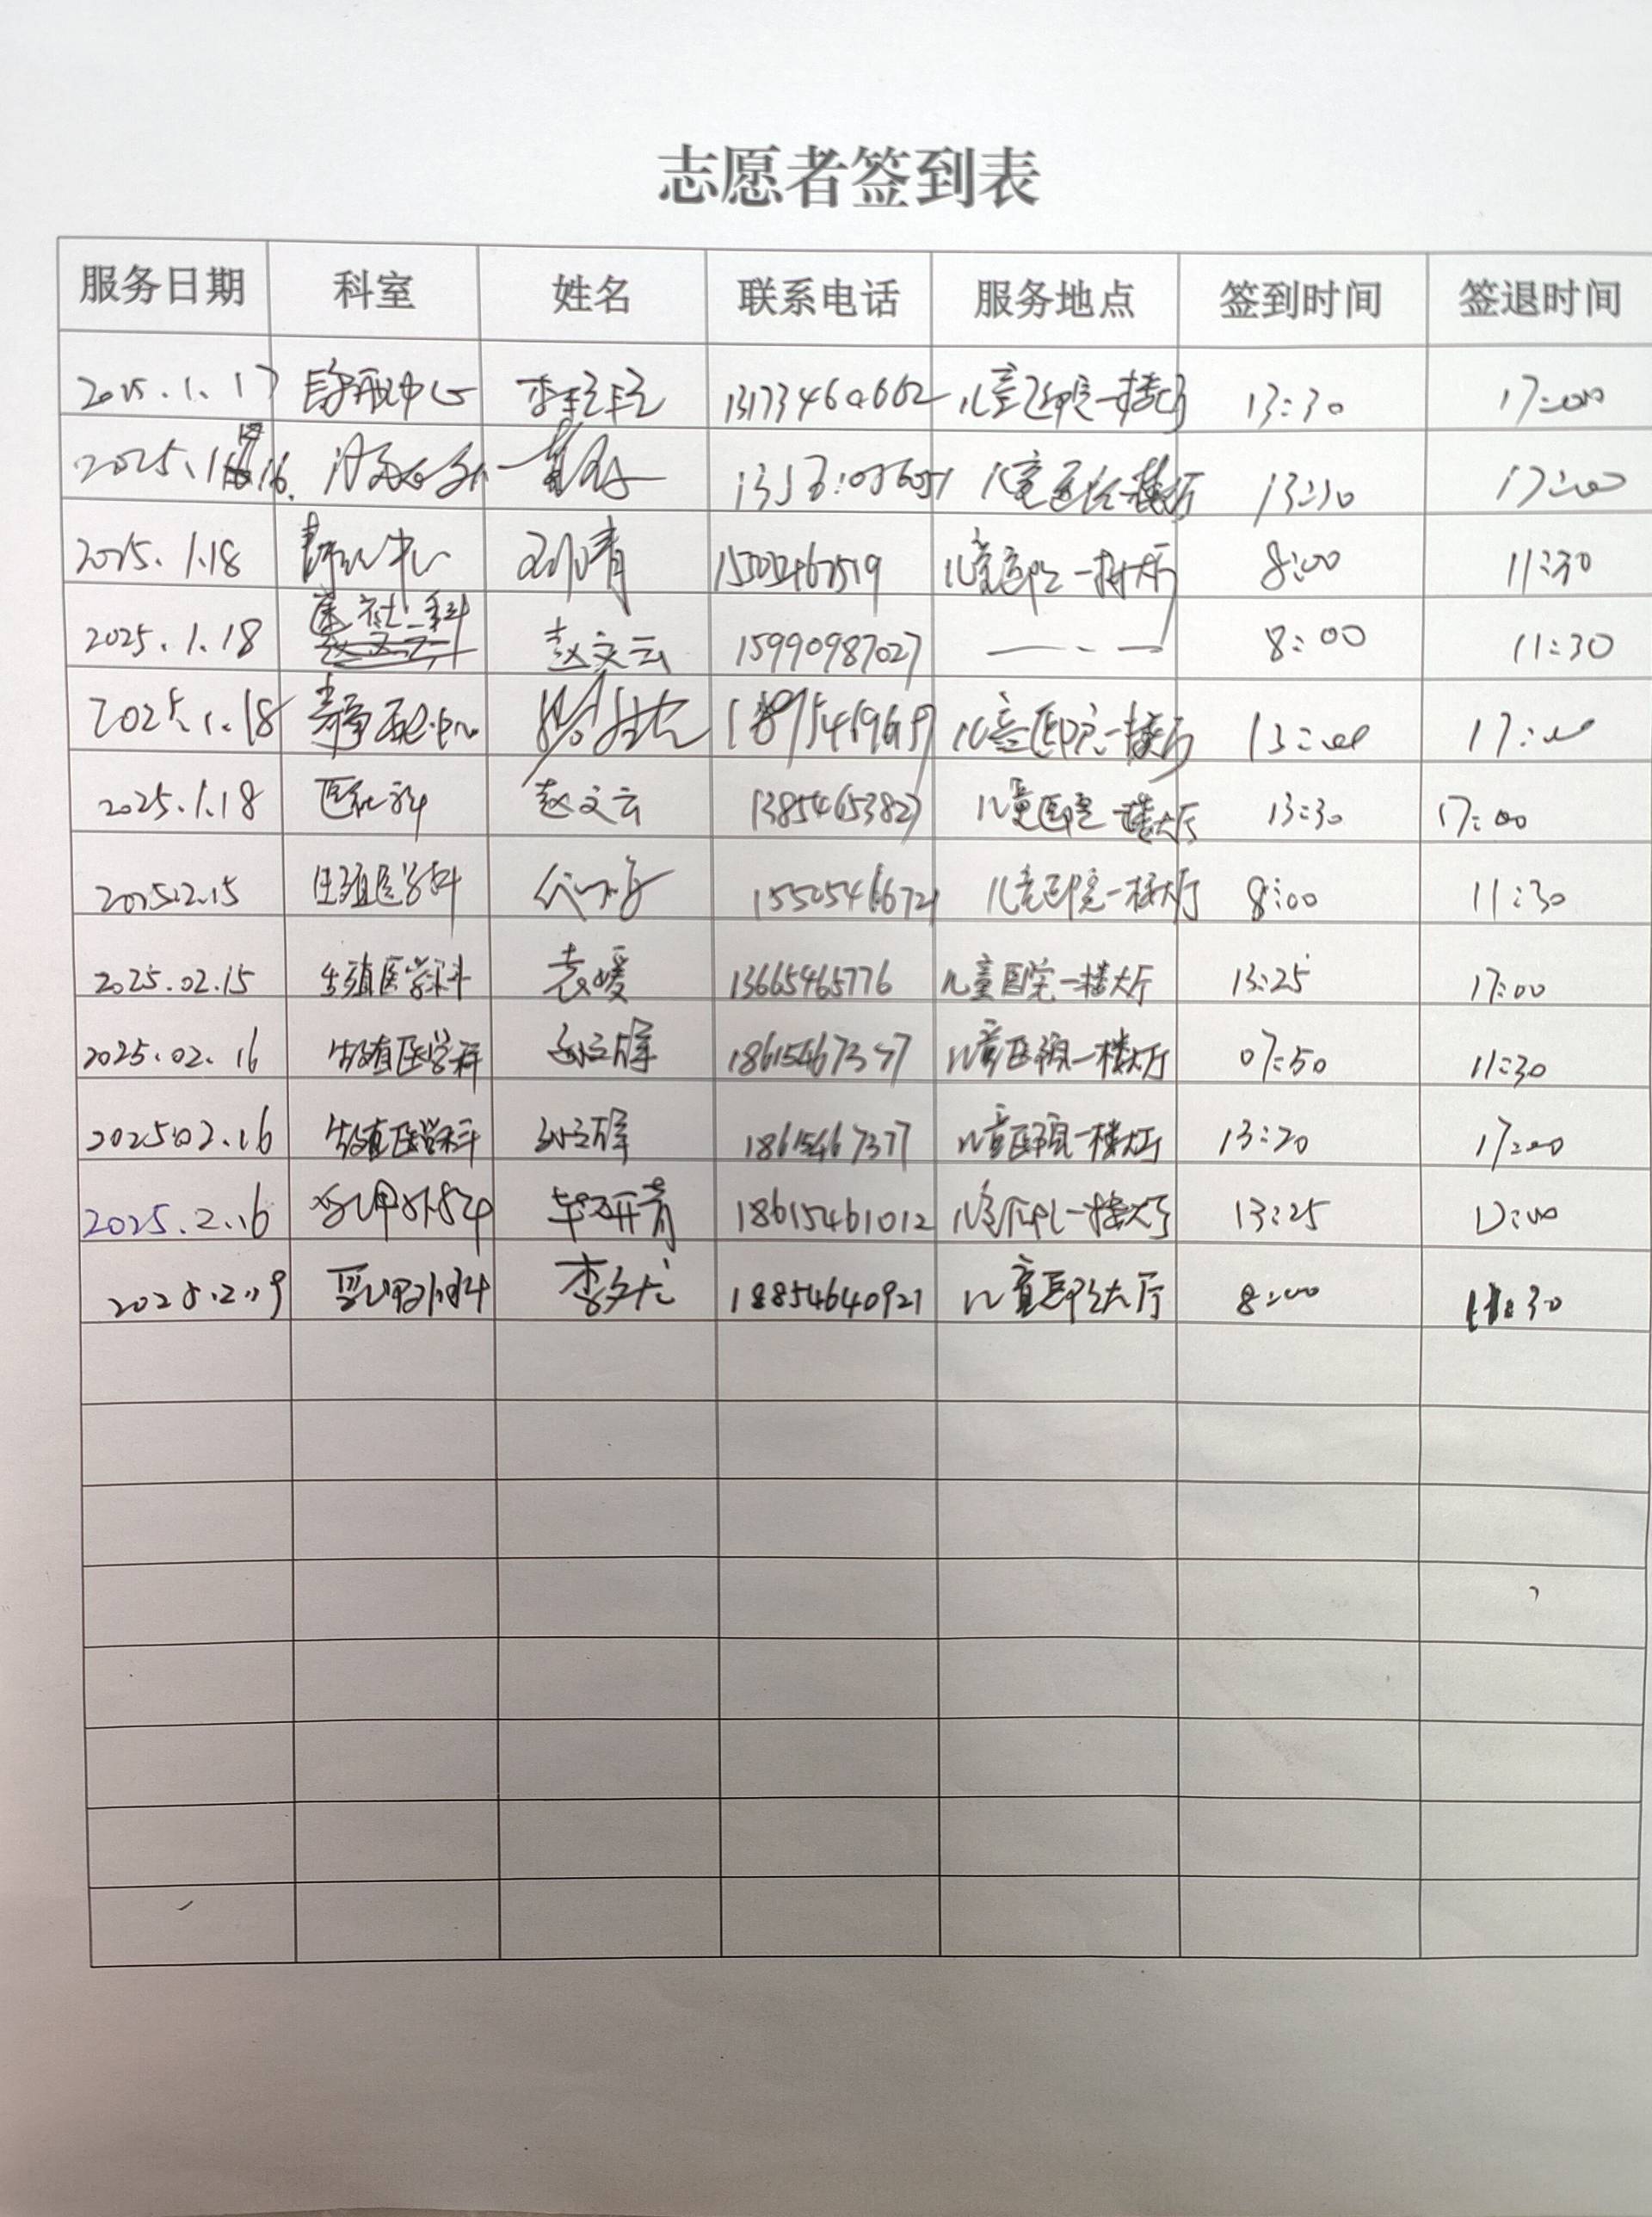 志愿者签到表
服务日期 科室 姓名 联系电话 服务地点 签到时间 签退时间
2025.1.17 静配中心 李 13173460662 儿童医院一楼大厅 13:30 17:00
2025.1 16. 儿童医院一楼大厅 13:30 17:00
2025.1.18 静配中心 刘青 儿童医院一楼大厅 8:00 11:30
2025.1.18 医社二科 赵文云 15990987027 8:00 11:30
2025.1.18 静配中心 儿童医院一楼大厅 13:00 17:00
2025.1.18 赵文云 13854653827 儿童医院一楼大厅 13:30 17:00
2025.2.15 生殖医学科 儿童医院一楼大厅 8:00 11:30
2025.02.15 生殖医学科 袁媛 13665465776 儿童医院一楼大厅 13:25 17:00
2025.02.16 生殖医学科 18615467377 儿童医院一楼大厅 07:50 11:30
2025.02.16 生殖医学科 18615467377 儿童医院一楼大厅 13:20 17:00
2025.2.16 乳甲外科 毕研青 18615461012 儿童医院一楼大厅 13:25 17:00
2025.2.19 乳甲外科 李 18854640921 儿童医院大厅 8:00 11:30